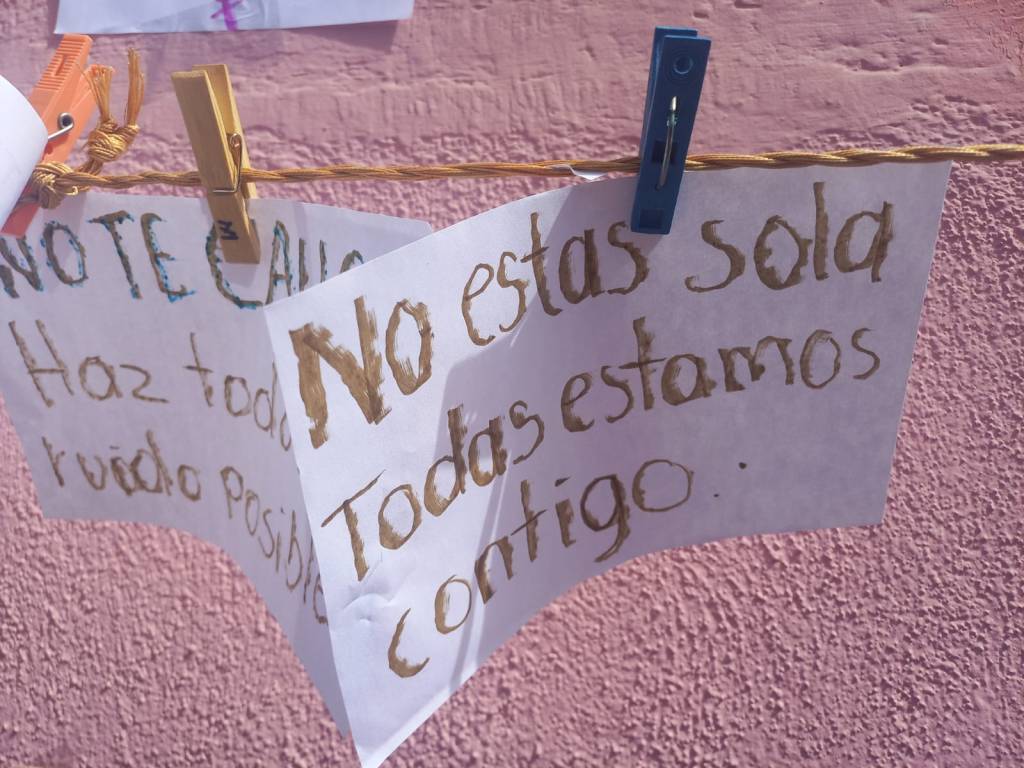 NO TE
Haz
ruido posible
No estas sola
Todas estamos
contigo.
M